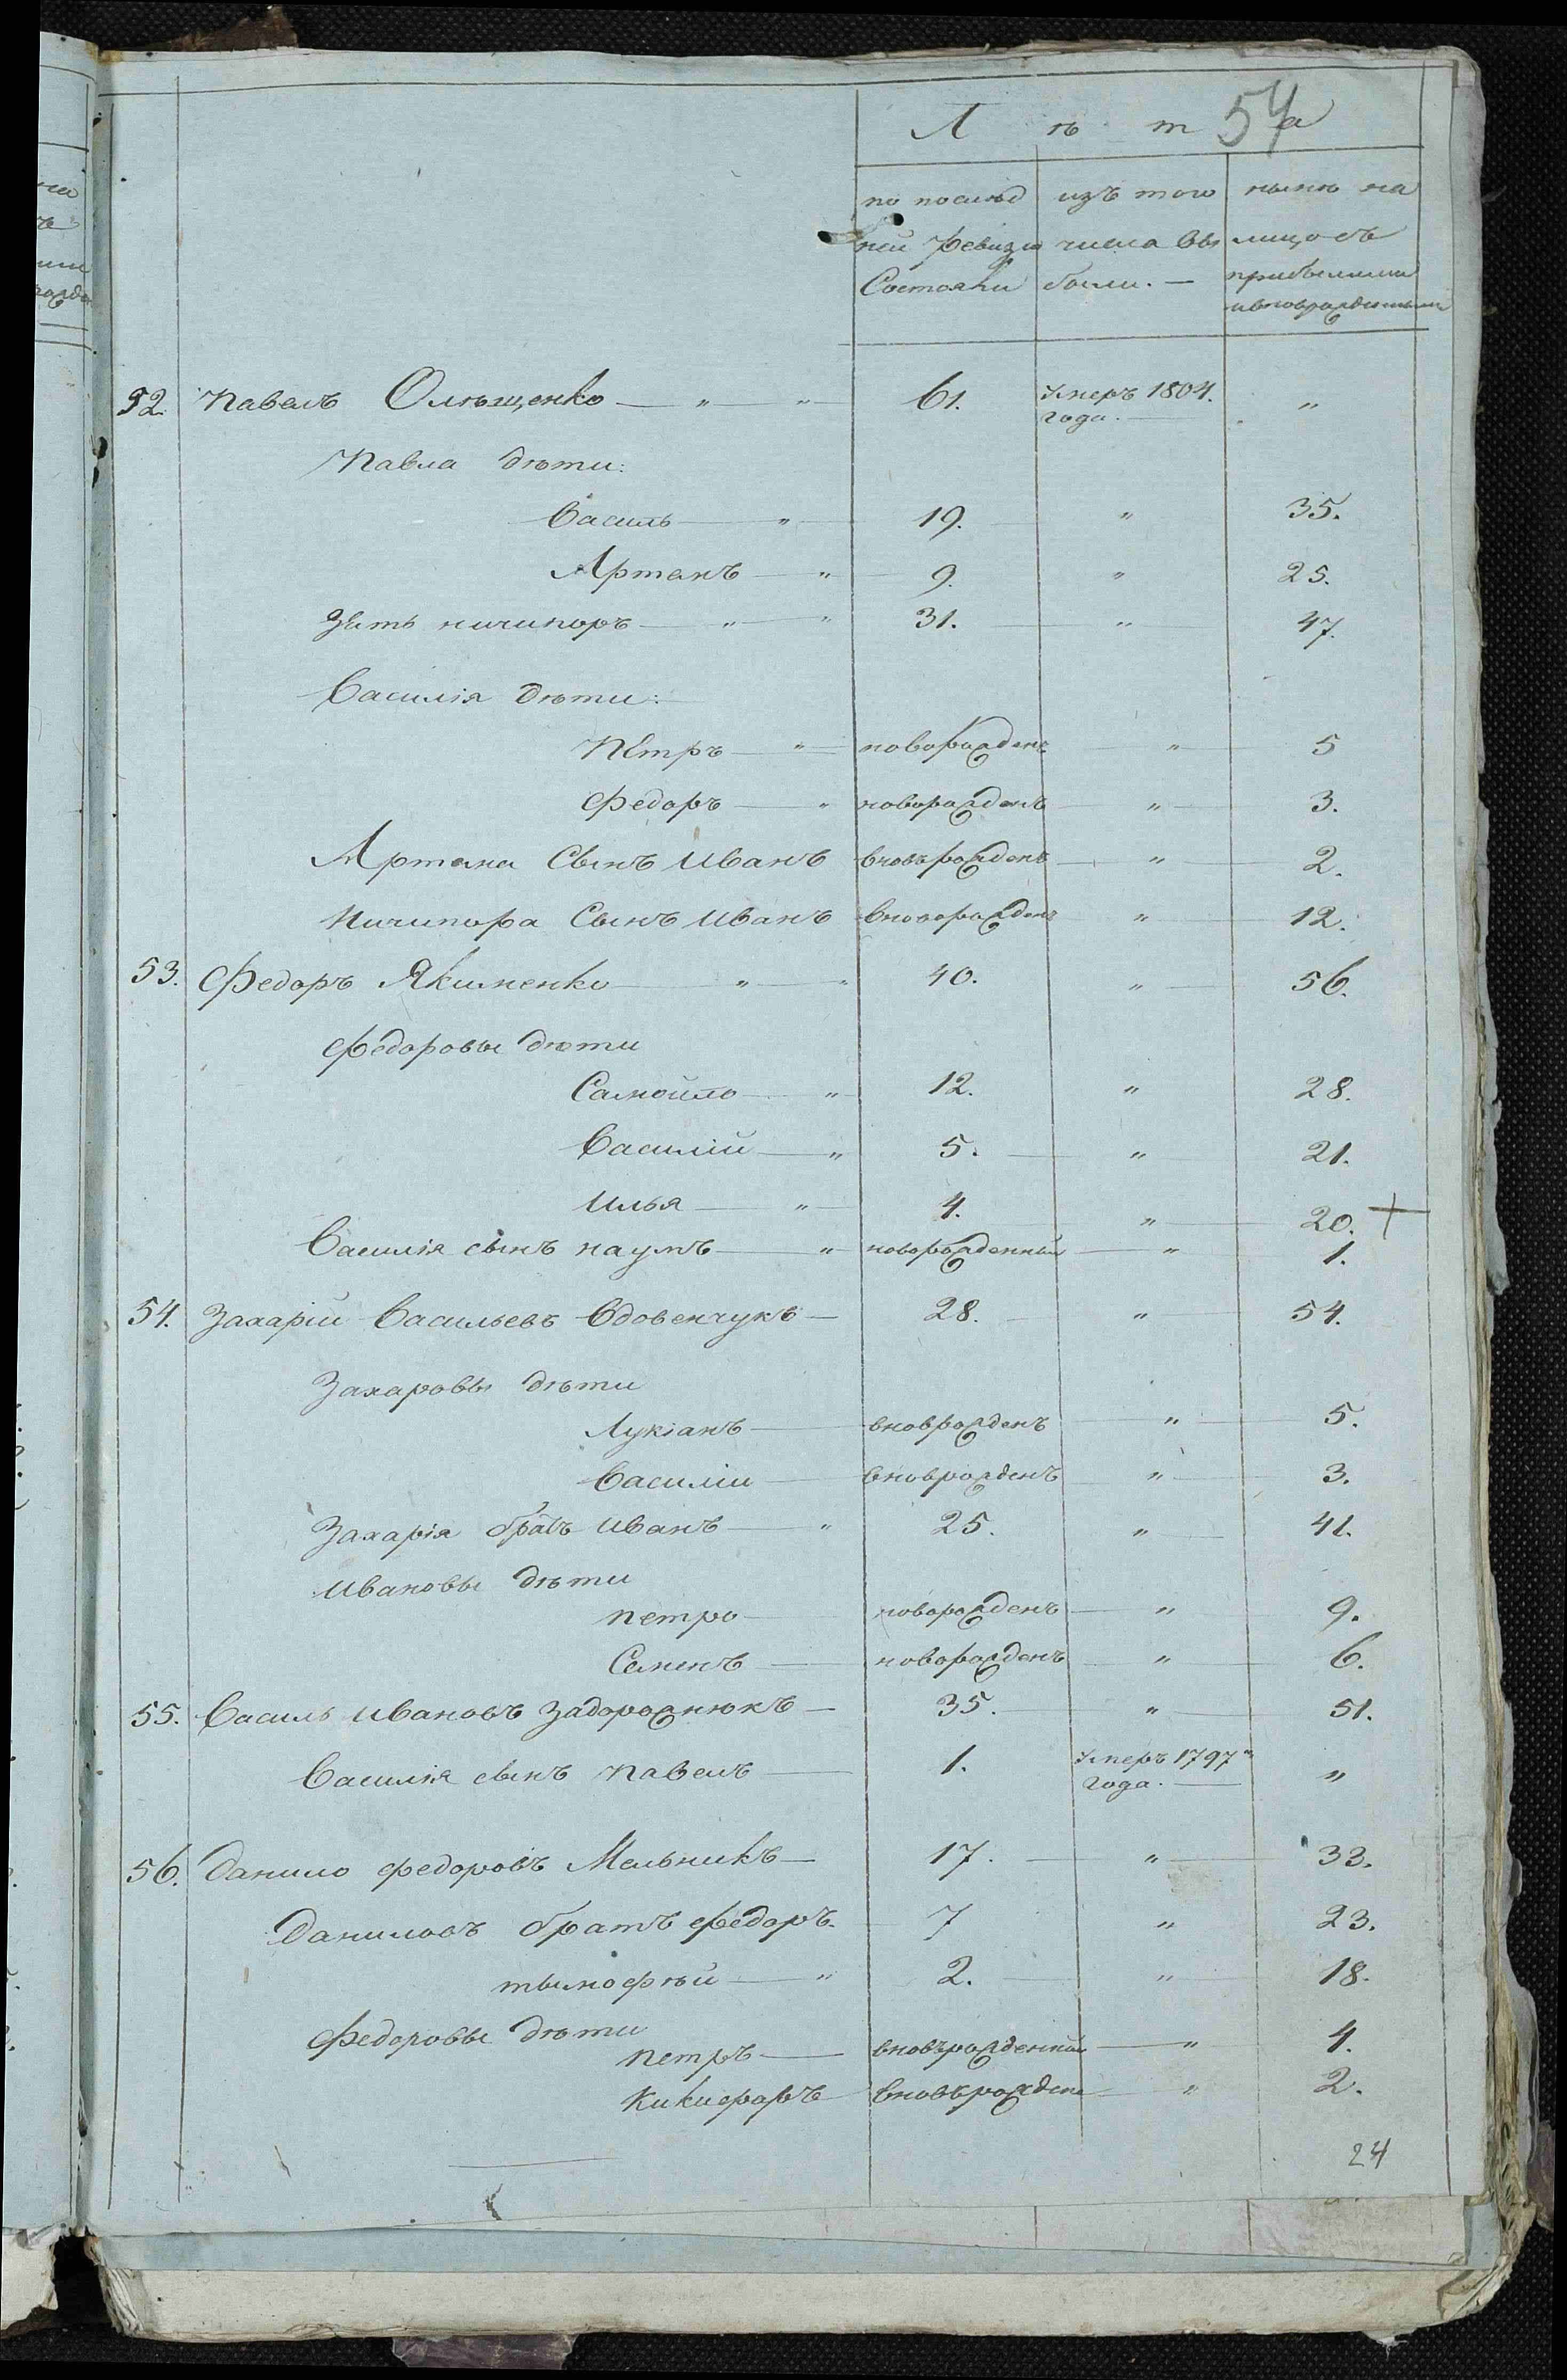 54
Л ѣ т а
по послѣд изъ того нынѣ на
ней ревизіи числа вы лицо съ
Состояли были. — прибылыми
и вноврожденными
52. Павелъ Олѣщенко — " — " 61. Умеръ 1804. "
года. —
Павла дѣти:
Василь — " — 19. " 35.
Артемъ — " — 9. " 25.
Зять ничипоръ — " — " 31. " 47.
Василія дѣти:
Петръ — " — новорожденъ — " — 5
Федоръ — " новорожденъ — " — 3.
Артема Сынъ Иванъ вновьрожденъ — " — 2.
Ничипора Сынъ Иванъ вноворожденъ " — 12.
53. Федоръ Якименко — " — " 40. " — 56.
Федоровы дѣти
Самойло — " — 12. " 28.
Василій — " 5. — " 21.
Илья — " — 4. " — 20. +
Василія сынъ наумъ — " новорожденный — " — 1.
54. Захарій Васильевъ Вдовенчукъ — 28. — " — 54.
Захаровы дѣти
Лукіанъ — вноврожденъ — " — 5.
Василіи — вноврожденъ — " — 3.
Захарія братъ Иванъ — " 25. " — 41.
Ивановы дѣти
петро — новорожденъ — " — 9.
Семенъ — новорожденъ — " — 6.
55. Василь Ивановъ Задорожнюкъ — 35. — " — 51.
Василія сынъ павелъ — 1. Умеръ 1797 "
года. —
56. Данило федоровъ Мельникъ — 17. — " — 33.
Даниловъ братъ федоръ. 7 " 23.
тымофѣй — " 2. — " — 18.
Федоровы дѣти
петръ — вновьрожденный — " — 4.
Кикифоръ вновьрожден — " — 2.
24